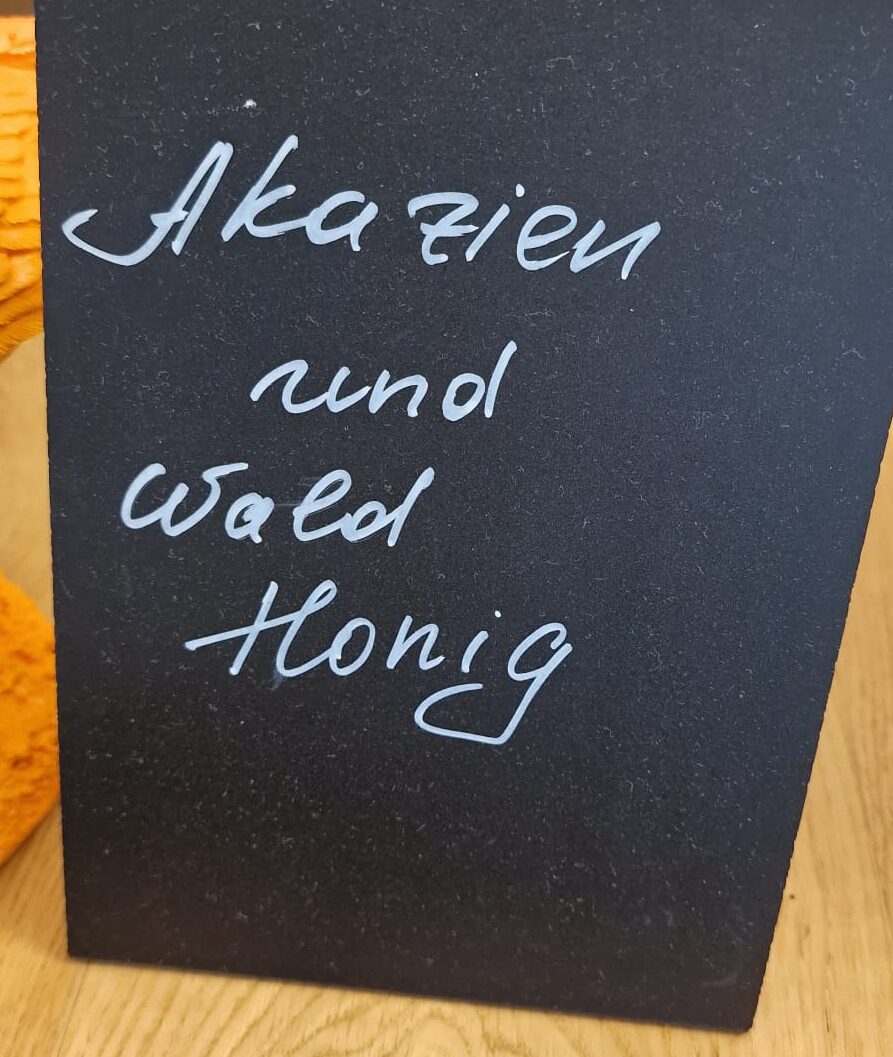 Akazien
und
Wald
Honig